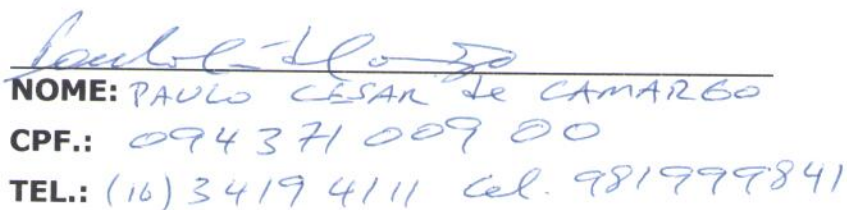 NOME: PAULO CESAR de CAMARGO
CPF.: 094 371 009 00
TEL.: (16) 3419 4111 Cel. 981999841